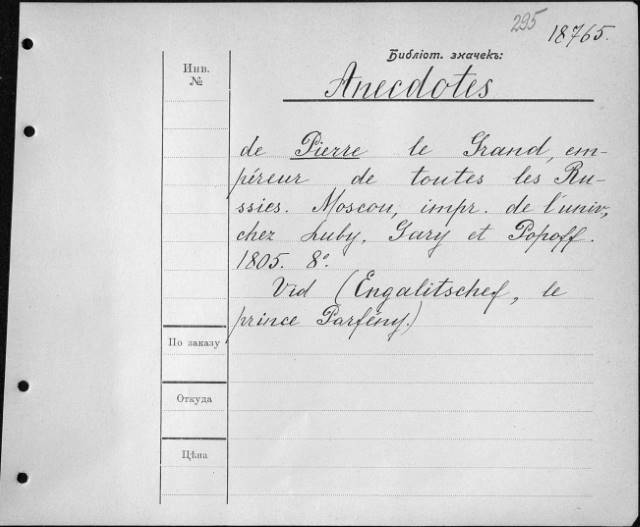 295
18765.
Библіот. значекъ:
Инв.
№
Anecdotes
de Pierre le Grand, em-
péreur de toutes les Ru-
ssies. Moscou, impr. de l'univ,
chez Luby, Gary et Popoff.
1805. 8°.
Vid (Engalitschef, le
prince Parfény.)
По заказу
Откуда
Цѣна